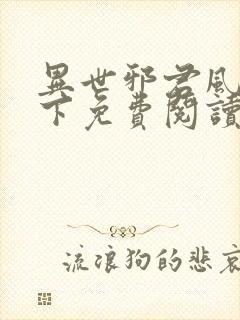 異世邪君風
下免費閱讀
流浪狗的悲哀